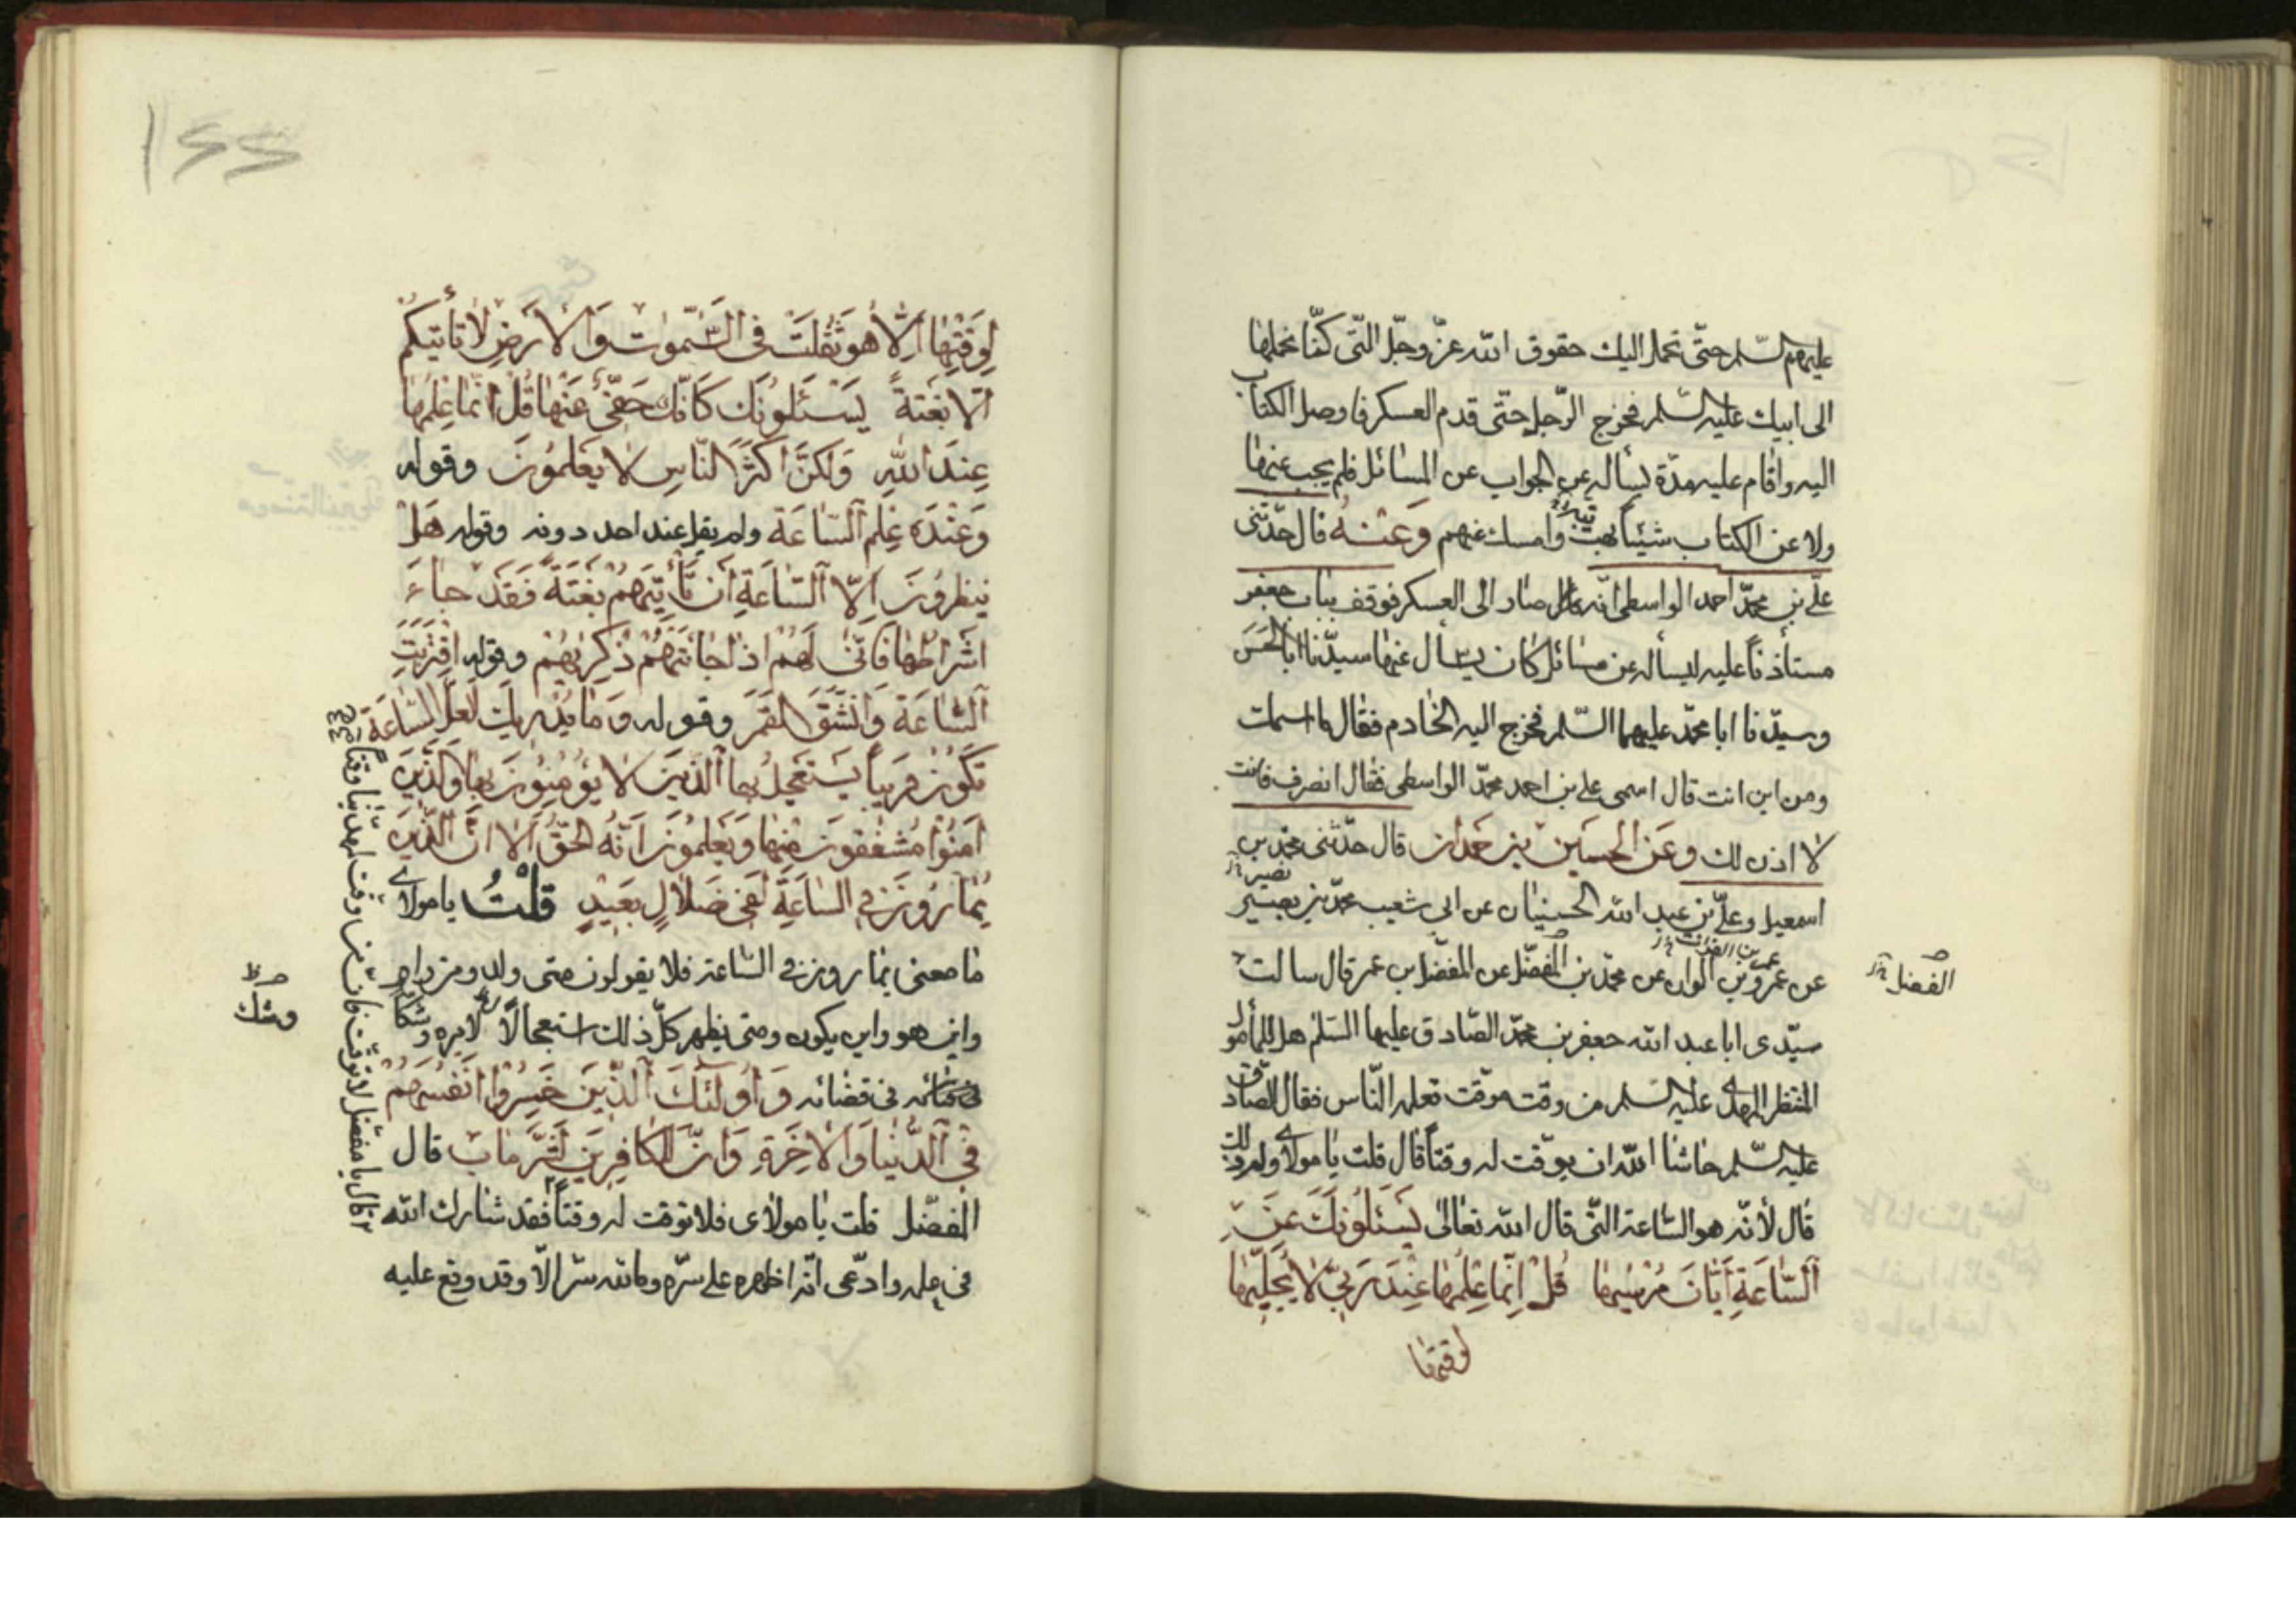 عليهم السلم حتّى نحمل اليك حقوق الله عزّ وجلّ التى كنّا نحملها
الى ابيك عليه السّلم فخرج الرّجل حتّى قدم العسكر فاوصل الكتاب
اليه واقام عليه مدّة يسأله عن الجواب عن المسائل فلم يجب عنها
ولا عن الكتاب شيئا وامسك عنهم وَعَنْهُ قال حدّثنى
علّى بن محمّد احمد الواسطى انّه صار الى العسكر فوقف بباب جعفر
مستأذناً عليه ليسأله عن مسائل كان يسأل عنها سيّدنا ابا الحَسَن
وسيّدنا ابا محمّد عليهما السّلم فخرج اليه الخادم فقال ما اسمك
ومن اين انت قال اسمى على بن احمد محمّد الواسطى فقال انصرف فانت
لا اذن لك وعَن الحسَين بن حَمدان قال حدّثنى محمّد بن
نصير
اسمعيل وعلّى بن عبد الله الحسنيان عن ابى شعيب محمّد بن نصير
عمر بن الفرات
عن عمرو بن عن محمّد بن المفضّل عن المفضّل بن عمر قال سالت
الفضل
سيّدى ابا عبد الله جعفر بن محمّد الصّادق عليهما السّلم هل للمأمول
المنتظر المهدى عليه السّلم من وقت موّقت تعلمه النّاس فقال الصّادق
عليه السّلم حاشا الله ان يوقّت له وقتاً قال قلت يا مولاى ولم ذلك
قال لأنّه هو السّاعة التّى قال الله تعالى يَسْئَلُونَكَ عَنِ
ٱلسَّاعَةِ أَيَّانَ مُرْسٰيهٰا قُلْ إِنَّمٰا عِلْمُهٰا عِنْدَ رَبّى لا يُجَلّيهٰا
لوقتها
١٤٤
لِوَقْتِهٰا اِلّٰا هُوَ ثَقُلَتْ فى السَّمٰوٰتِ وَالْاَرْضِ لٰا تَأتيكُمْ
اِلّا بَغْتَةً يَسْئَلُونَكَ كَانَّكَ حَفِىٌّ عَنْهٰا قُلْ اِنَّمٰا عِلْمُهٰا
عِنْدَ اللهِ وَلكِنَّ اَكْثَرَ النّاسِ لا يَعْلَمُونَ وقوله
وَعِنْدَه عِلم ٱلسّاعَة ولم يقل عند احد دونه وقوله هَلْ
ينظرُونَ اِلّا ٱلسّاعَةِ اَن تَأتِيَهُمْ بَغْتَةً فَقَدْ جٰاءَ
اَشْرٰاطُهٰا فَانّىٰ لَهُمْ اذٰا جٰائَتهُمْ ذِكْرٰيهُمْ وقوله اقْتَرَبَتِ
ٱلسّاعَةَ وَانْشَقَّ القَمَر وقوله وَمٰا يُدْريكَ لَعَلَّ السّٰاعَةَ
تَكُونُ قَرِيباً يَسْتَعْجِلُ بها ٱلَّذينَ لا يُؤمِنُونَ بِهٰا وَالَّذينَ
اٰمَنُوا مُشْفِقُونَ مِنْهٰا وَيَعْلَمُونَ اَنّهُ الحَقّ اَلا انّ الَّذينَ
يُمٰارُونَ فى السّٰاعَةِ لَفى ضَلٰالٍ بَعيدٍ قلْتُ يا مولاى
مٰا معنى يمارون فى السّاعة فلا يقولون متى ولد ومن راه
واين هو واين يكون ومتى يظهر كلّ ذلك استعجالًا لامره وشكّا
وشك
فى قضائه وَاُولٰئكَ ٱلّذينَ خَسِرُوا اَنفُسَهُمْ
فى ٱلدّنْيٰا وَالْاٰخِرَةِ وَانّ للكافِرينَ لَشَرَّ مَاب قال
المفضّل قلت يا مولاى فلا توقت له وقتاً فقد شارك الله
فى علمه وادّعى انّه اظهره على سرّه وما لله سرّ الّا وقد وقع عليه
قال يا مفضّل لا توقّت فان من وقّت لمهدّينا وقتاً